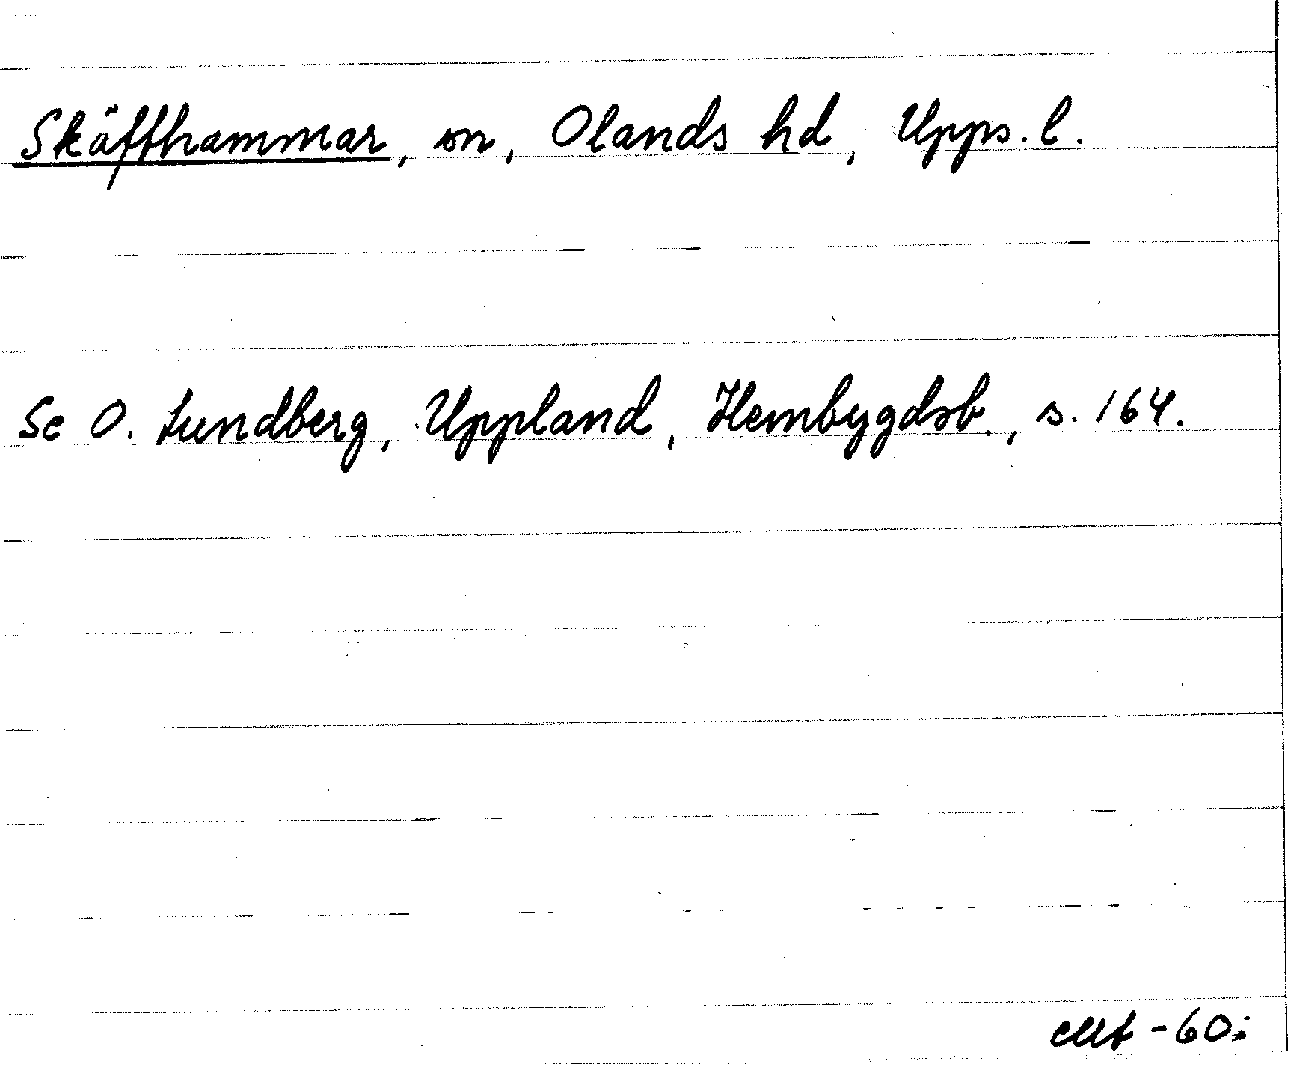 Skäfthammar, sn, Olands hd, Upps. l.
Se O. Lundberg, Uppland, Hembygdsb., s. 164.
-60.